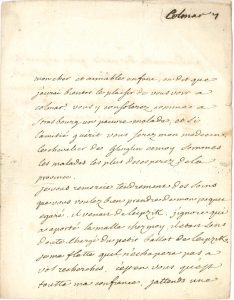 Colmar
mon cher et aimable enfant, on dit que
j'aurai bientost le plaisir de vous voir a
colmar. vous y consolerez comme a
strasbourg un pauvre malade, et si
l'amitié guérit vous serez mon medecin.
les malades les plus desesperez de la
province.
je vous remercie tendrement des soins
que vous voulez bien prendre de mon paquet
egaré. il venait de leipzik. j'ignore qui
a porté
doute chargé du petit ballot de leipzik.
me flatte quil n'échapera pas a
vos recherches.
toutte ma confiance. j'attends une